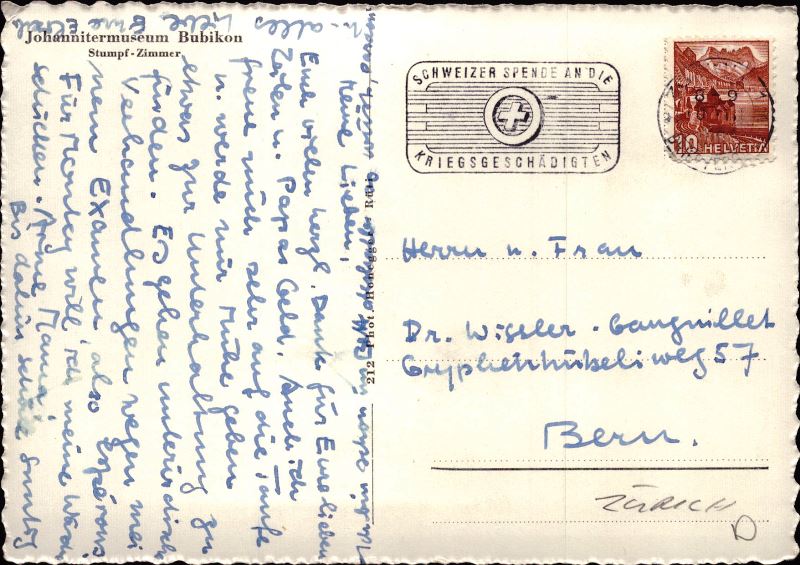 Johannitermuseum Bubikon
Stumpf-Zimmer
SCHWEIZER SPENDE AN DIE
KRIEGSGESCHÄDIGTEN
10 HELVETIA
212 Phot. Honegger, Rüti
Meine Lieben,
Euch vielen herzl. Dank für Eure lieben
Zeilen u. Papas Geld. Auch ich
freue mich sehr auf die Taufe
u. werde mir Mühe geben
etwas zur Unterhaltung zu
finden. Es gehen unterirdisch
Verhandlungen wegen mei
nem Examen, also espérons
Für Montag will ich meine
schicken. Arme Mama!
Bis dahin schöne Sonntag
Herrn u. Frau
Dr. Wissler-Ganguillet
Gryphenhübeliweg 57
Bern.
ZÜRICH
D